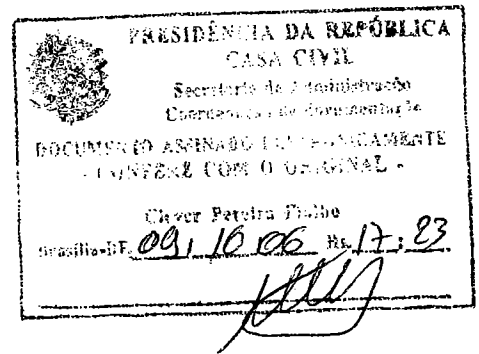 PRESIDÊNCIA DA REPÚBLICA
CASA CIVIL
Secretaria de Administração
Coordenação de Documentação
DOCUMENTO ASSINADO ELETRONICAMENTE
- CONFERE COM O ORIGINAL -
Clever Pereira Fialho
Brasília-DF, 09, 10 06 Hs. 17:23